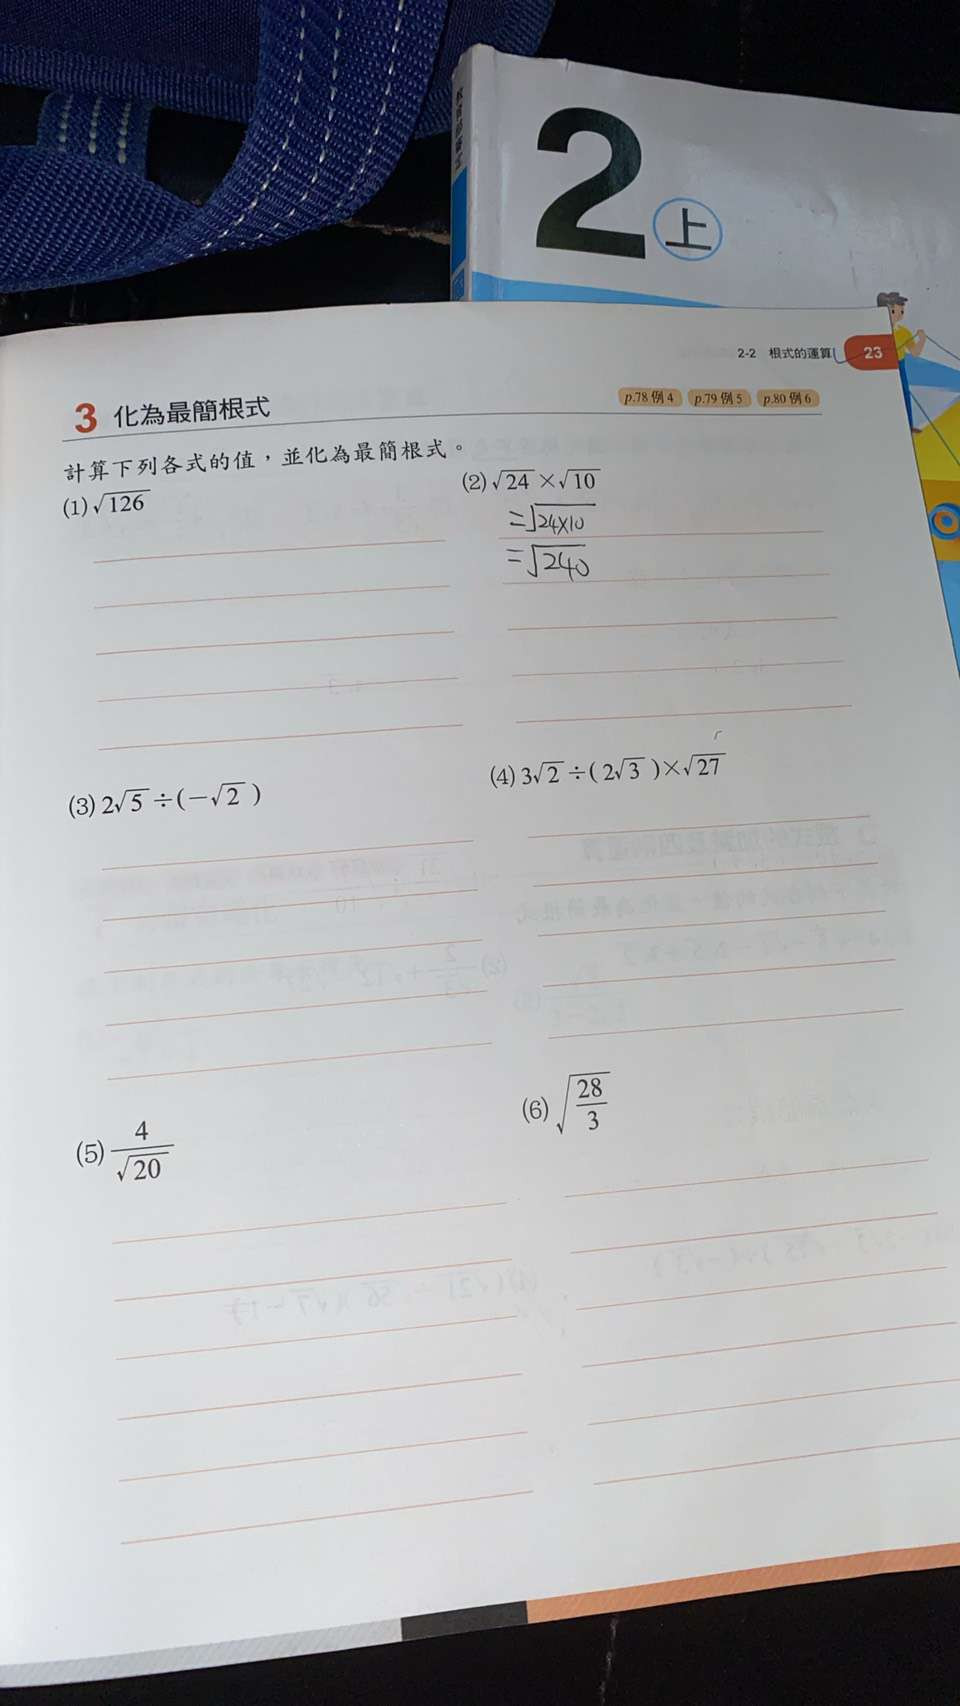 2 上
2-2 根式的運算 23
3 化為最簡根式 p.78 例 4 p.79 例 5 p.80 例 6
計算下列各式的值，並化為最簡根式。
(1) √126
(2) √24 × √10
=√24×10
=√240
(3) 2√5 ÷ (−√2)
(4) 3√2 ÷ (2√3) × √27
(5) 4/√20
(6) √(28/3)